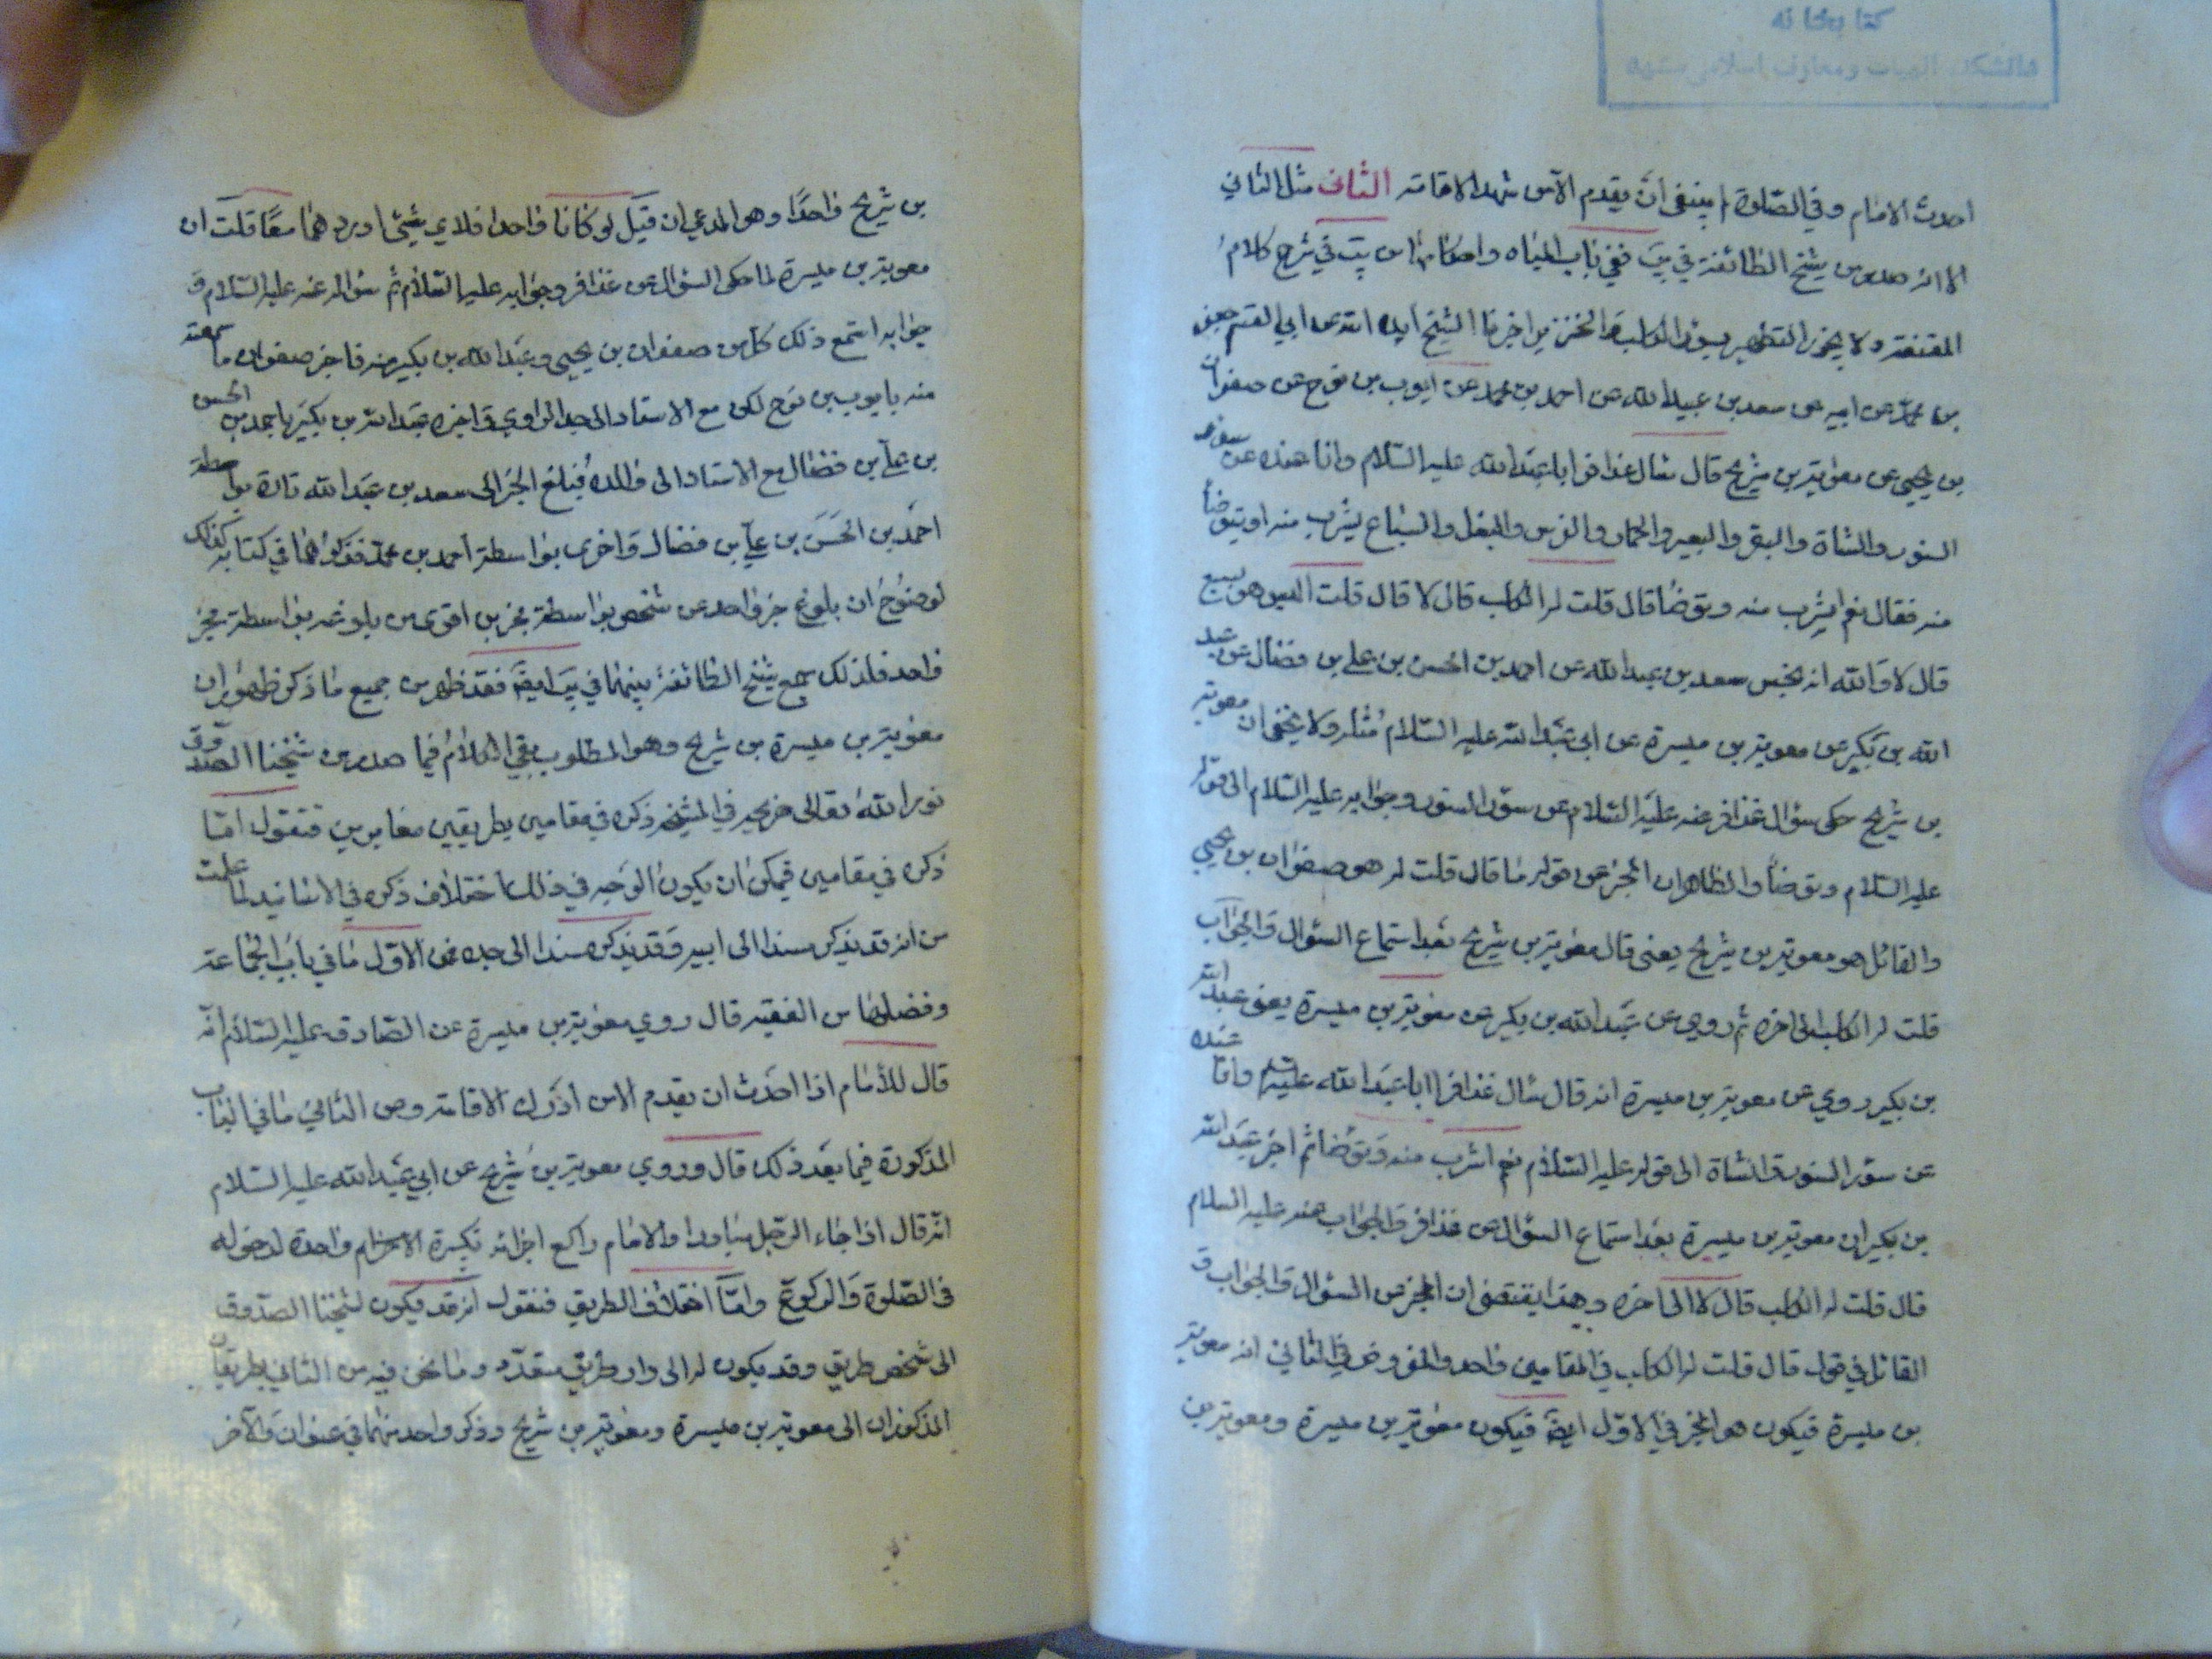 كتابخانه
دانشكده الهيات ومعارف اسلامى مشهد
احدث الامام وفي الصّلوة لم ينبغى انّ يقدم الّا من شهد الاقامته الثاني مثل الثاني
الا انه صدر من شيخ الطائفة في يب ففي باب المياه واحكامها من يب في شرح كلام
المقنعة ولا يجوز التطهير بسؤر الكلب والخنزير اخبرنا الشيخ ايده الله عن ابي القسم جعفر
بن محمّد عن ابيه عن سعد بن عبد الله عن احمد بن محمد عن ايوب بن نوح عن صفوان
بن يحيى عن معوية بن شريح قال سال عذافر ابا عبد الله عليه السّلام وانا عنده عن سؤر
السنور والشاة والبقر والبعير والحمار والفرس والبغل والسّباع يشرب منه او يتوضأ
منه فقال نعم اشرب منه وتوضّا قال قلت له الكلب قال لا قال قلت اليس هو سبع
قال لا والله انه نجس سعد بن عبد الله عن احمد بن الحسن بن علي بن فضّال عن عبد
الله بن بكير عن معوية بن ميسرة عن ابي عبد الله عليه السّلام مثله ولا يخفى ان معوية
بن شريح حكى سؤال عذافر عنه عليه السّلام عن سؤر السنور وجوابه عليه السّلام الى قوله
عليه السّلام وتوضّأ والظاهر ان المخبر عن قوله ما قال قلت له هو صفوان بن يحيى
والقائل هو معوية بن شريح يعنى قال معوية بن شريح بعد استماع السؤال والجواب
قلت له الكلب الى اخره ثم روى عن عبد الله بن بكير عن معوية بن ميسرة يعنى عبد الله
بن بكير روى عن معوية بن ميسرة انه قال سال عذافر ابا عبد الله عليه السلم وانا عنده
عن سؤر السنور والشاة الى قوله عليه السّلام نعم اشرب منه وتوضّا ثم اخبر عبد الله
بن بكير ان معوية بن ميسرة بعد استماع السؤال عن عذافر والجواب عنه عليه السلام
قال قلت له الكلب قال لا الى اخره وهذا يقتضى ان المخبر عن السؤال والجواب و
القائل في قوله قال قلت له الكلب في المقامين واحد والمفروض في الثاني انه معوية
بن ميسرة فيكون هو المخبر في الاوّل ايضا فيكون معوية بن ميسرة ومعوية بن
بن شريح واحدا وهو المدعى ان قيل لو كانا واحدا فلاي شيئ اوردهما معًا قلت ان
معوية بن ميسرة لما حكى السؤال عن عذافر وجوابه عليه السّلام ثم سؤاله عنه عليه السّلام و
جوابه استمع ذلك كل من صفوان بن يحيى وعبد الله بن بكير منه فاخبر صفوان ما سمعته
منه بايوب بن نوح لكن مع الاسناد الى جد الراوي واخبره عبد الله بن بكير باحمد بن الحسن
بن علي بن فضّال مع الاسناد الى والده فبلغ الخبر الى سعد بن عبد الله تارة بواسطة
احمد بن الحسن بن علي بن فضال واخرى بواسطة احمد بن محمّد فذكرهما في كتابه كذلك
لوضوح ان بلوغ خبر واحد عن شخص بواسطة مخبرين اقوى من بلوغه بواسطة مخبر
واحد فلذلك جمع شيخ الطائفة بينهما في يب ايضا فقد ظهر من جميع ما ذكر ظهور ان
معوية بن ميسرة بن شريح وهو المطلوب بقي الكلام فيما صدر من شيخنا الصّدوق
نور الله تعالى ضريحه في المشيخة ذكره في مقامين بطريقين مغايرين فنقول امّا
ذكره في مقامين فيمكن ان يكون الوجه في ذلك اختلاف ذكره في الاسانيد لما علمت
من انه قد يذكر مسندا الى ابيه وقد يذكر مسندا الى جده فمن الاوّل ما في باب الجماعة
وفضلها من الفقيه قال روى معوية بن ميسرة عن الصّادق عليه السّلام انّه
قال للأمام اذا احدث ان يقدم الا من ادرك الاقامة ومن الثاني ما في الباب
المذكورة فيما بعد ذلك قال وروى معوية بن شريح عن ابي عبد الله عليه السّلام
انّه قال اذا جاء الرّجل مبادرا والامام راكع اجزائه تكبيرة الاحرام واحدة لدخوله
في الصّلوة والركوع وامّا اختلاف الطريق فنقول انه قد يكون لشيخنا الصّدوق
الى شخص طريق وقد يكون له الى راو طريق متعدّد وما نحن فيه من الثاني بطريقان
المذكوران الى معوية بن ميسرة ومعوية بن شريح وذكر واحد منهما في عنوان والآخر